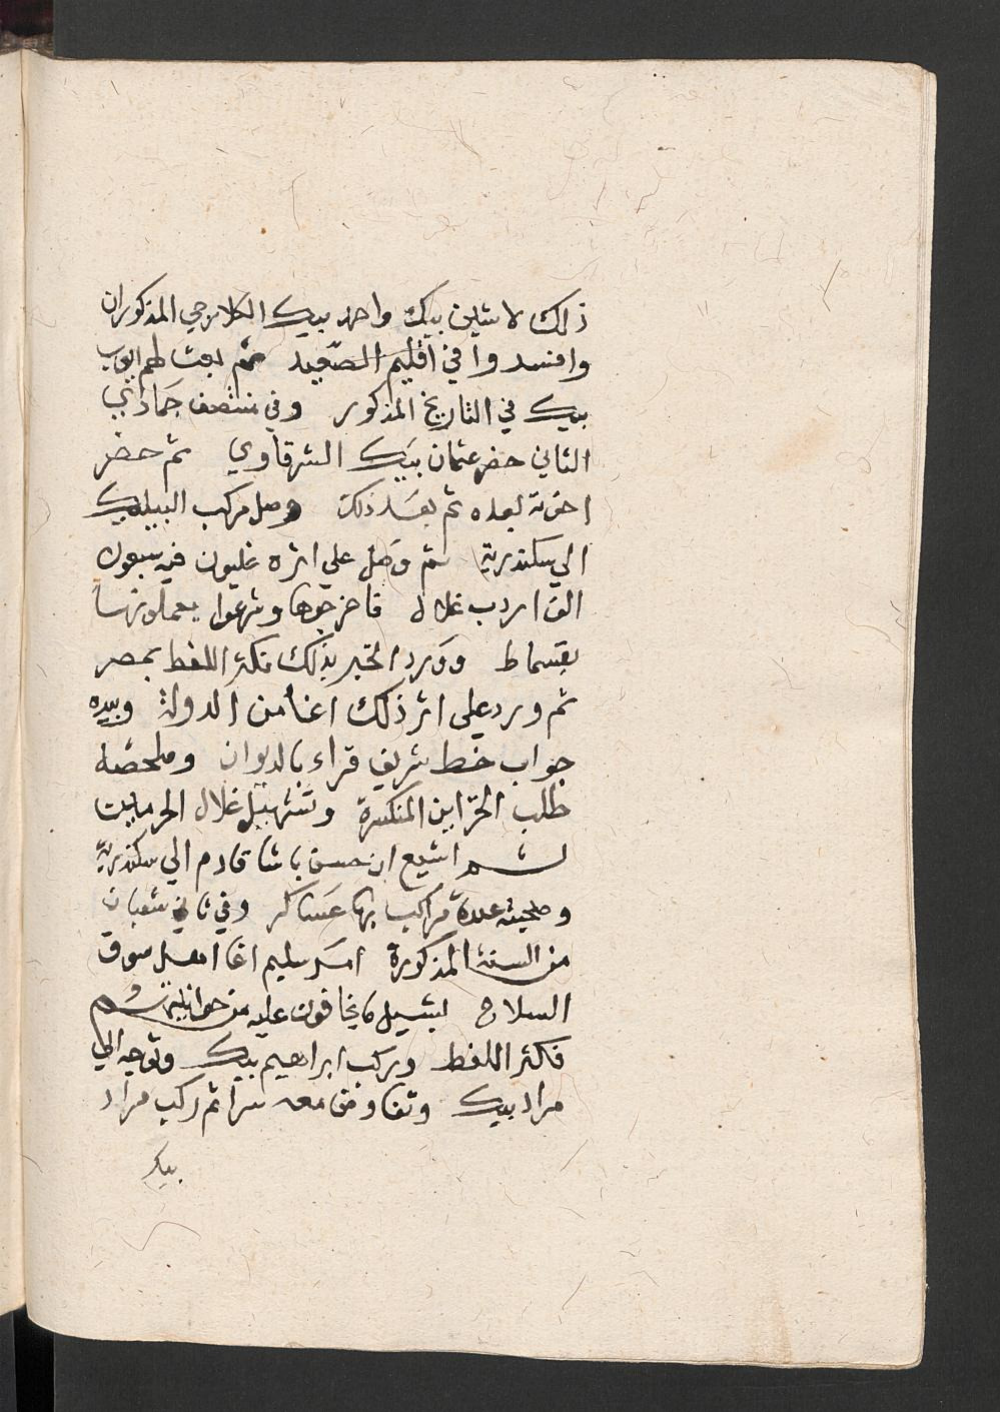 ذلك لاشين بيك واحمد بيك الكلارجي المذكوران
وافسدوا في اقليم الصّعيد ثم بعث لهم ايوب
بيك في التاريخ المذكور وفي منتصف جمادي
الثاني حضر عثمان بيك الشرقاوي ثم حضر
اخوته بعده ثم بعد ذلك وصل مركب البيليك
الي سكندرية ثم وصل علي اثره غليون فيه سبعون
الف اردب غلال فاخرجوها وشرعوا يعملونها
بقسماط وورد الخبر بذلك فكثر اللغط بمصر
ثم ورد علي اثر ذلك اغا من الدولة وبيده
جواب خط شريف قراء بالديوان وملخصه
طلب الخزاين المنكسرة وتشهيل غلال الحرمين
ثم اشيع ان حسن باشا قادم الي سكندرية
وصحبته عدة مراكب بها عساكر وفي ثاني شعبان
من السنة المذكورة امر سليم اغا اهل سوق
السلاح بشيل ما يخافون عليه من حوانيتهم
فكثر اللغط وركب ابراهيم بيك وتوجه الي
مراد بيك وتفاوض معه سرا ثم ركب مراد
بيك